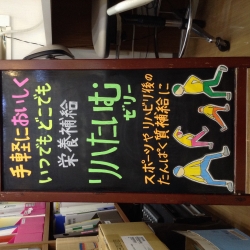 手軽においしく
いつでもどこでも
栄養補給
リハたいむ
ゼリー
スポーツやリハビリ後の
たんぱく質補給に